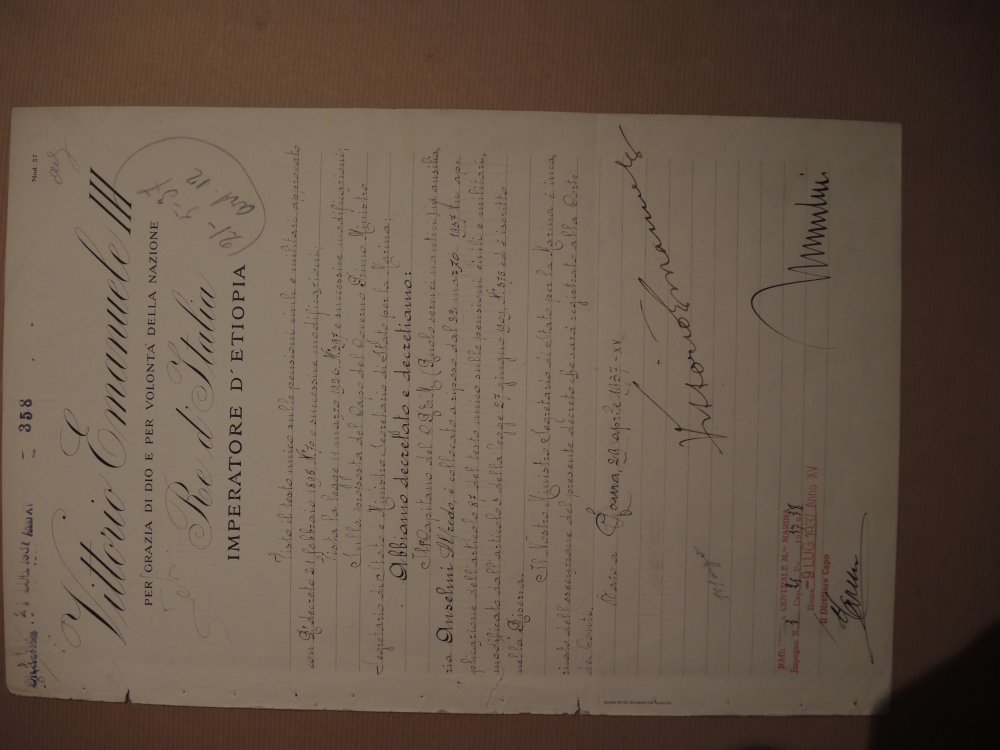 358
Mod. 57
Vittorio Emanuele III
PER GRAZIA DI DIO E PER VOLONTÀ DELLA NAZIONE
Re d'Italia
IMPERATORE D'ETIOPIA
Visto il testo unico sulle pensioni civili e militari approvato
con R° decreto 21 febbraio 1895 N° 70 e successive modificazioni;
Vista la legge 11 marzo 1926, N° 397 e successive modificazioni;
Sulla proposta del Capo del Governo Primo Ministro
Segretario di Stato e Ministro Segretario di Stato per la Marina;
Abbiamo decretato e decretiamo:
Il Capitano del (Ruolo servizi nautici)
Anselmi Alfredo, è collocato a riposo dal 22 marzo 1937 in ap-
plicazione dell'articolo del testo unico sulle pensioni civili e militari,
modificato dall'articolo 5 della legge 27 giugno N° 375 ed è iscritto
nella Riserva.
Il Nostro Ministro Segretario di Stato per la Marina è inca-
ricato dell'esecuzione del presente decreto che sarà registrato alla Corte
dei Conti.
Dato a Roma, aprile 1937-XV
Vittorio Emanuele
Mussolini
CENTRALE MARINA
Impegno N.
Roma - 9 LUG. 1937 Anno XV
Il Direttore Capo